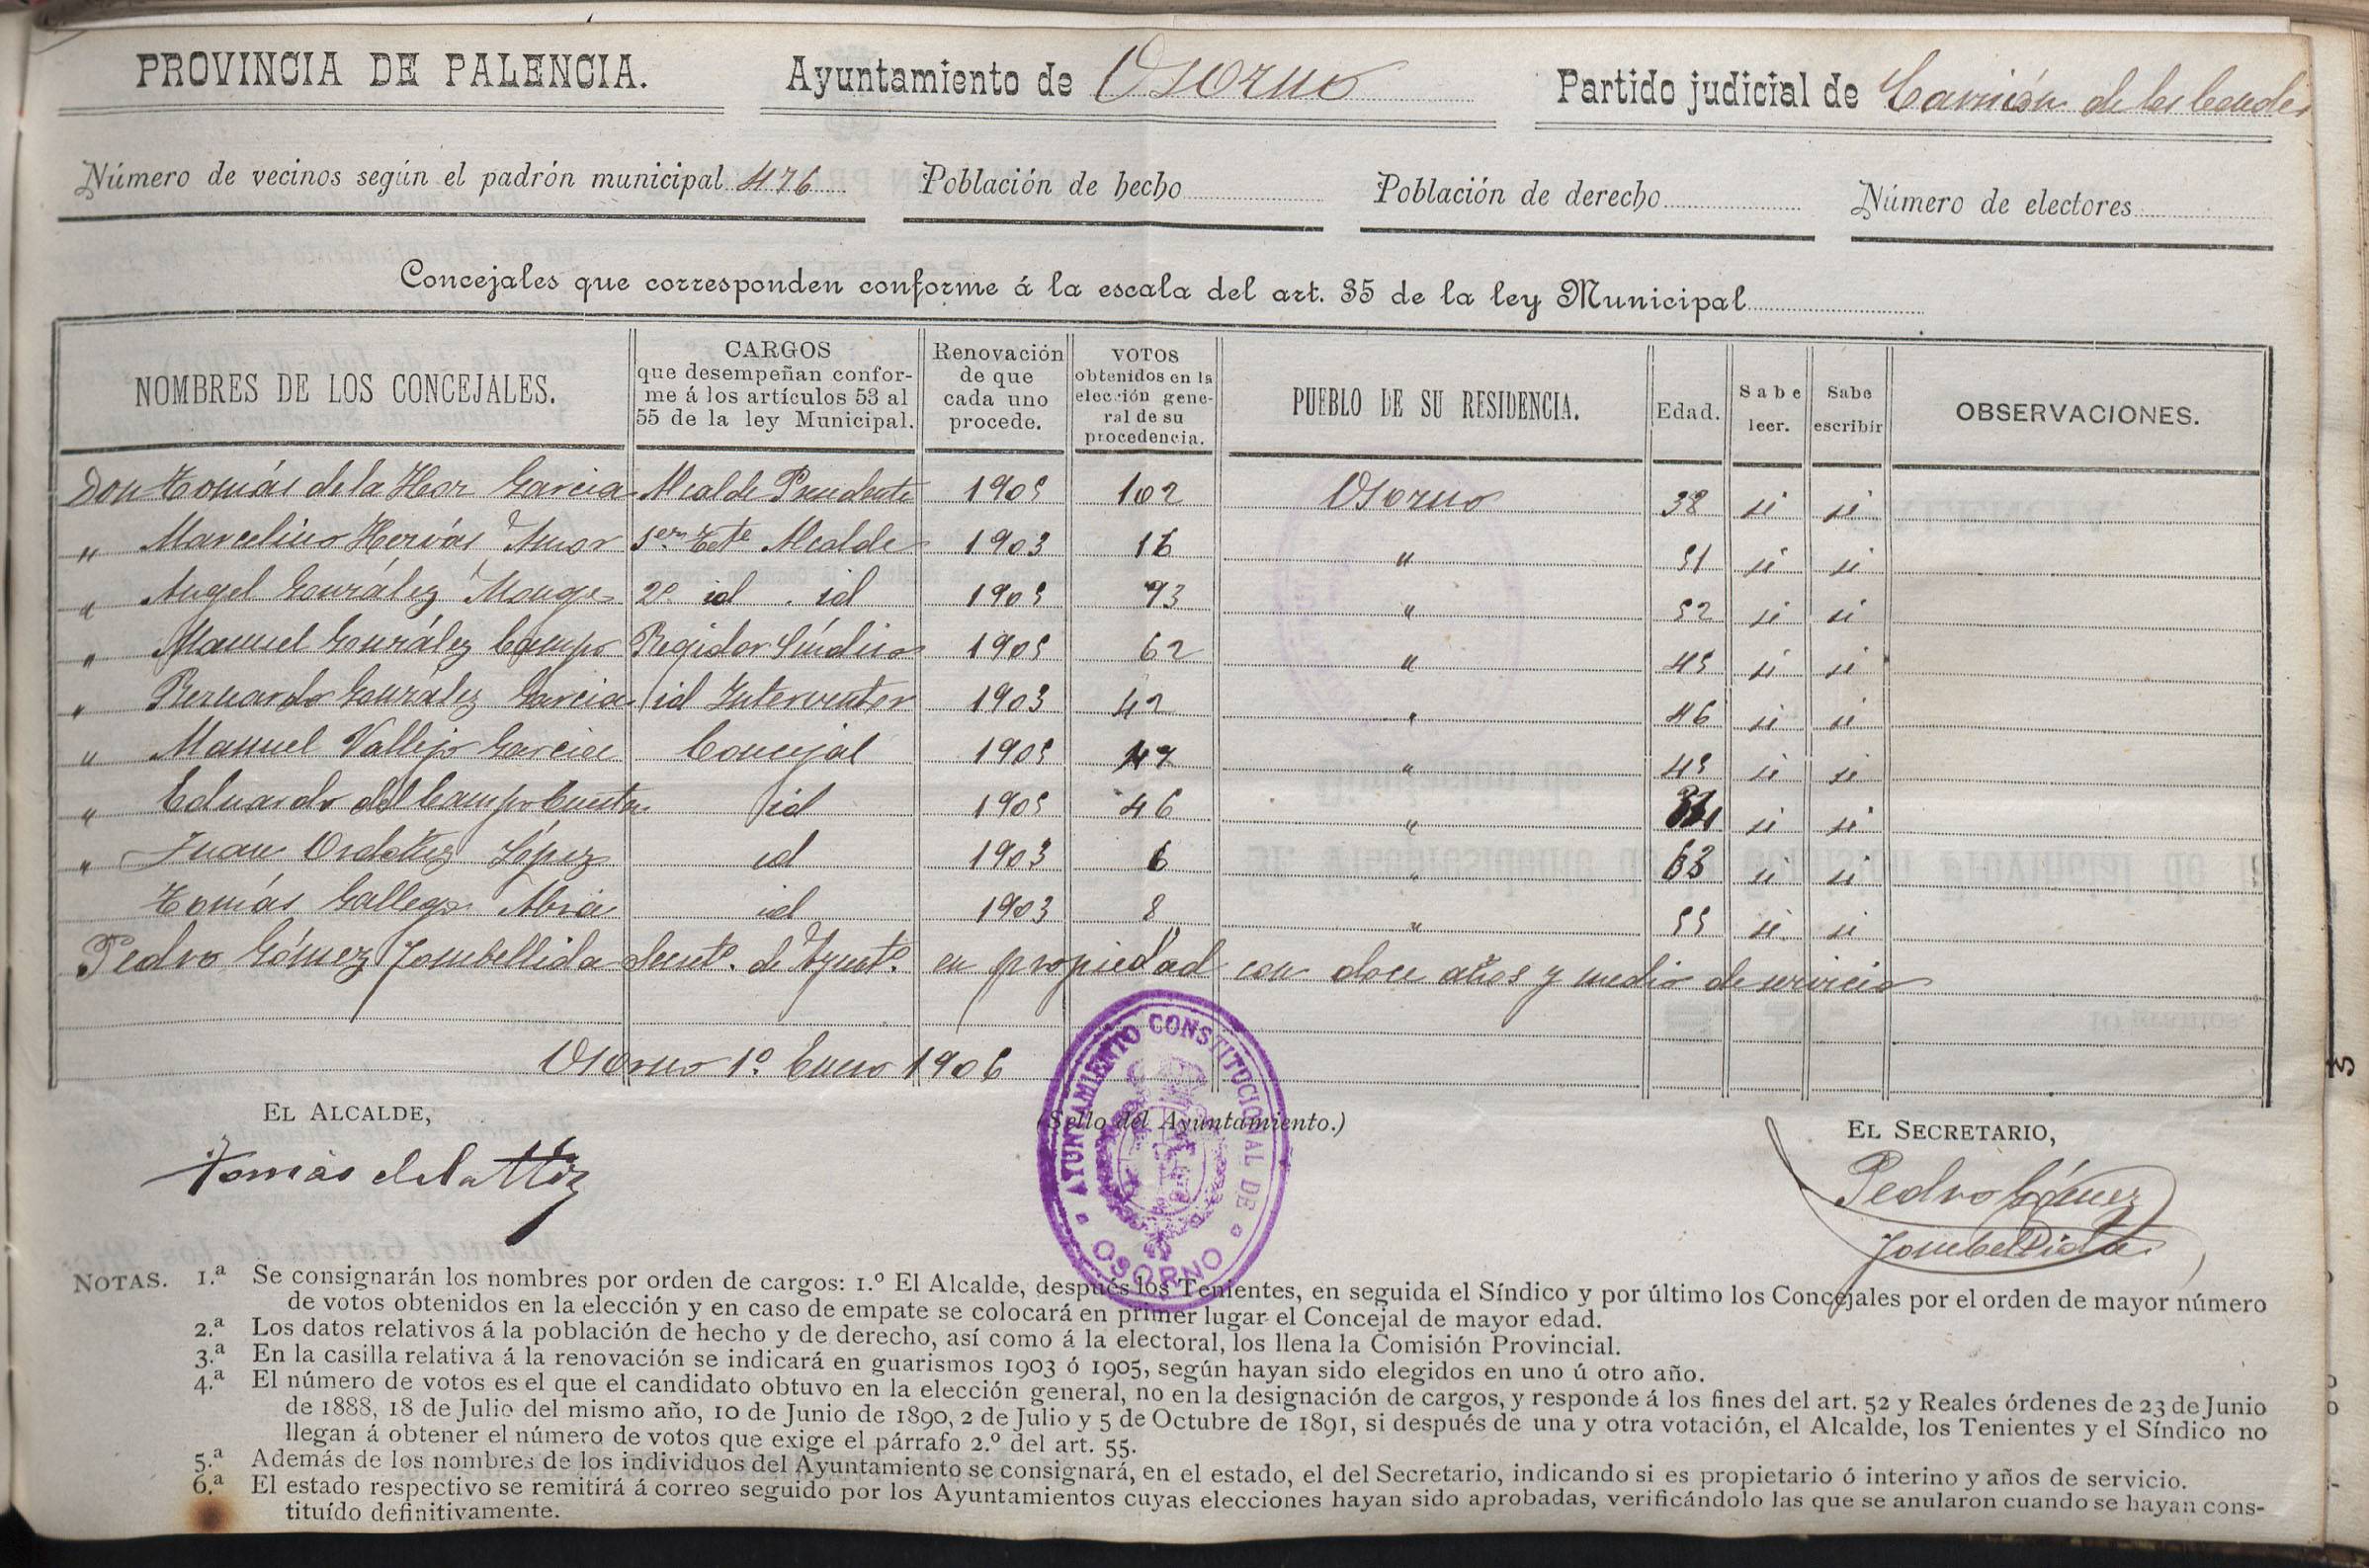 PROVINCIA DE PALENCIA. Ayuntamiento de Osorno Partido judicial de Carrión de los Condes
Número de vecinos según el padrón municipal 476 Población de hecho Población de derecho Número de electores
Concejales que corresponden conforme á la escala del art. 35 de la ley Municipal
NOMBRES DE LOS CONCEJALES. CARGOS que desempeñan conforme á los artículos 53 al 55 de la ley Municipal. Renovación de que cada uno procede. VOTOS obtenidos en la elección general de su procedencia. PUEBLO DE SU RESIDENCIA. Edad. Sabe leer. Sabe escribir OBSERVACIONES.
Don Tomás de la Hoz Garcia Alcalde Presidente 1905 102 Osorno 38 si si
" Marcelino Hervás Amor 1er Tete Alcalde 1903 16 " 51 si si
" Angel González Monge 2º id . id 1905 93 " 52 si si
" Manuel González Campo Regidor Síndico 1905 62 " 45 si si
" Bernardo González Garcia id Interventor 1903 42 " 46 si si
" Manuel Vallejo Garcia Concejal 1905 47 " 45 si si
" Eduardo del Campo id 1905 46 " si si
" Juan López id 1903 6 " 63 si si
Tomás Gallego Abia id 1903 8 " 55 si si
Pedro Gómez Fombellida Secretº. de Ayuntº. en propiedad con doce años y medio de servicio
Osorno 1º. Enero 1906
EL ALCALDE, (Sello del Ayuntamiento.) EL SECRETARIO,
Tomás de la Hoz
Pedro Gómez
Fombellida
AYUNTAMIENTO CONSTITUCIONAL DE
OSORNO
NOTAS. 1.ª Se consignarán los nombres por orden de cargos: 1.º El Alcalde, después los Tenientes, en seguida el Síndico y por último los Concejales por el orden de mayor número
de votos obtenidos en la elección y en caso de empate se colocará en primer lugar el Concejal de mayor edad.
2.ª Los datos relativos á la población de hecho y de derecho, así como á la electoral, los llena la Comisión Provincial.
3.ª En la casilla relativa á la renovación se indicará en guarismos 1903 ó 1905, según hayan sido elegidos en uno ú otro año.
4.ª El número de votos es el que el candidato obtuvo en la elección general, no en la designación de cargos, y responde á los fines del art. 52 y Reales órdenes de 23 de Junio
de 1888, 18 de Julio del mismo año, 10 de Junio de 1890, 2 de Julio y 5 de Octubre de 1891, si después de una y otra votación, el Alcalde, los Tenientes y el Síndico no
llegan á obtener el número de votos que exige el párrafo 2.º del art. 55.
5.ª Además de los nombres de los individuos del Ayuntamiento se consignará, en el estado, el del Secretario, indicando si es propietario ó interino y años de servicio.
6.ª El estado respectivo se remitirá á correo seguido por los Ayuntamientos cuyas elecciones hayan sido aprobadas, verificándolo las que se anularon cuando se hayan cons-
tituído definitivamente.